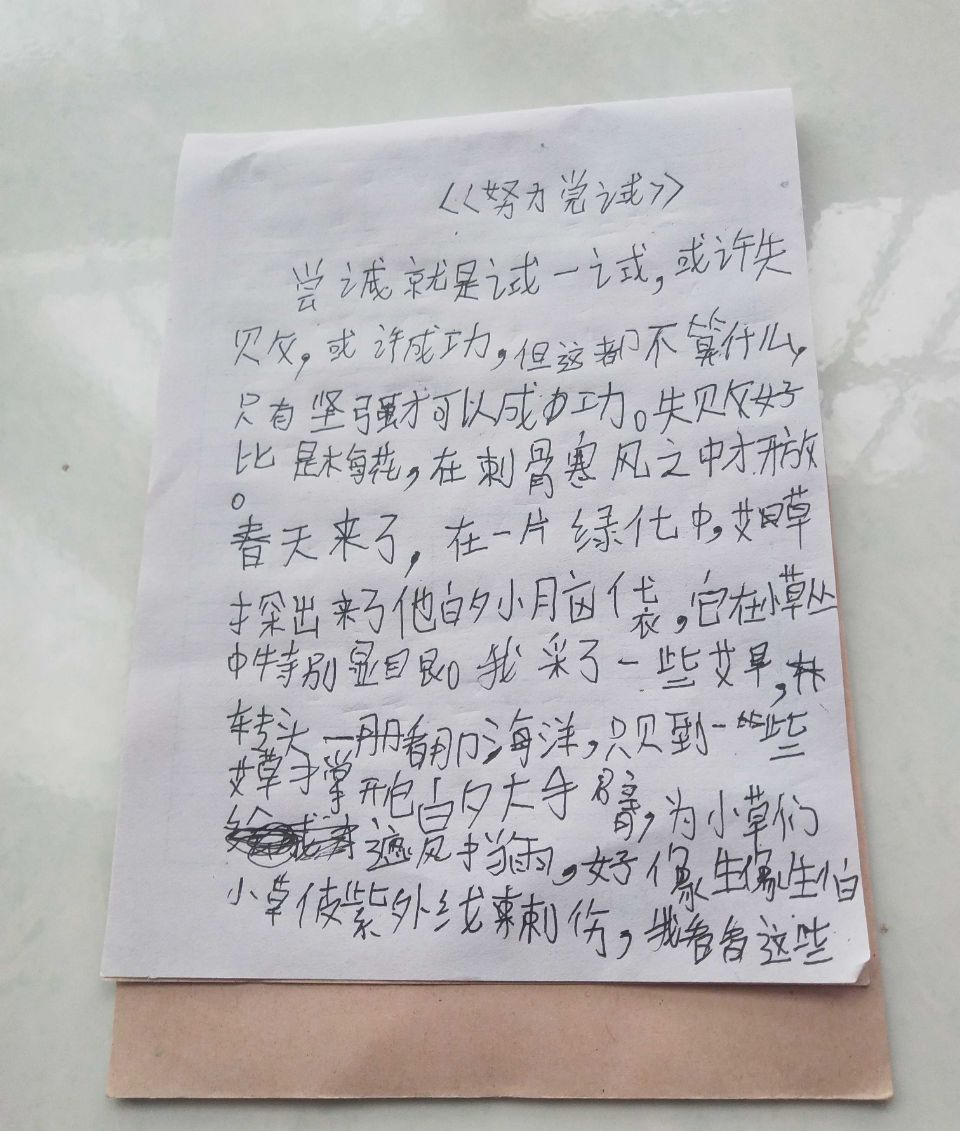 《努力尝试》
尝试就是试一试，或许失
败，或许成功，但这都不算什么，
只有坚强才可以成功。失败好
比是梅花，在刺骨寒风之中才开放
。
春天来了，在一片绿化中，艾草
探出来了他的小脑袋，它在小草丛
中特别显目眼。我采了一些艾草，
转头一看海洋，只见到一些
艾草掌形的大手臂，为小草们
遮风挡雨，好像生像生怕
小草使紫外线刺伤，我看看这些